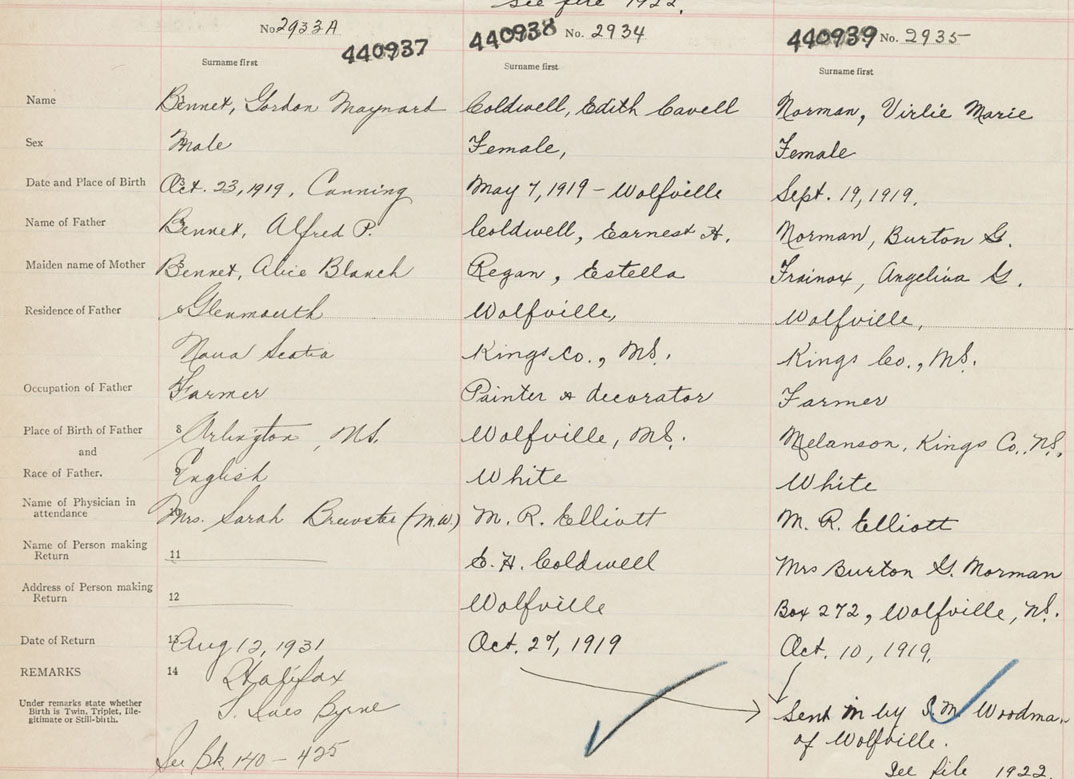 See file 1922.
No. 2933A 440938 No. 2934 440939 No. 2935
440937
Surname first Surname first Surname first
Name Bennet, Gordon Maynard Coldwell, Edith Cavell Norman, Virlie Marie
Sex Male Female, Female
Date and Place of Birth Oct. 23, 1919, Canning May 7, 1919 - Wolfville Sept. 19, 1919.
Name of Father Bennet, Alfred P. Coldwell, Earnest H. Norman, Burton G.
Maiden name of Mother Bennet, Alice Blanch Regan, Estella Angelina G.
Residence of Father Glenmouth Wolfville, Wolfville,
Nova Scotia Kings Co., NS. Kings Co., NS.
Occupation of Father Farmer Painter & decorator Farmer
Place of Birth of Father 8 Arlington, NS. Wolfville, NS. Melanson, Kings Co., NS.
and
Race of Father. 9 English White White
Name of Physician in
attendance 10 Mrs. Sarah Brewster (M.W.) M. R. Elliott M. R. Elliott
Name of Person making
Return 11 E. H. Coldwell Mrs Burton G. Norman
Address of Person making
Return 12 Wolfville Box 272, Wolfville, NS.
Date of Return 13 Aug 12, 1931 Oct. 27, 1919 Oct. 10, 1919.
REMARKS 14 Halifax
Under remarks state whether
Birth is Twin, Triplet, Ille-
gitimate or Still-birth.
Byrne Sent in by S. M. Woodman
of Wolfville.
See Bk. 140 - 425 See file 1922.